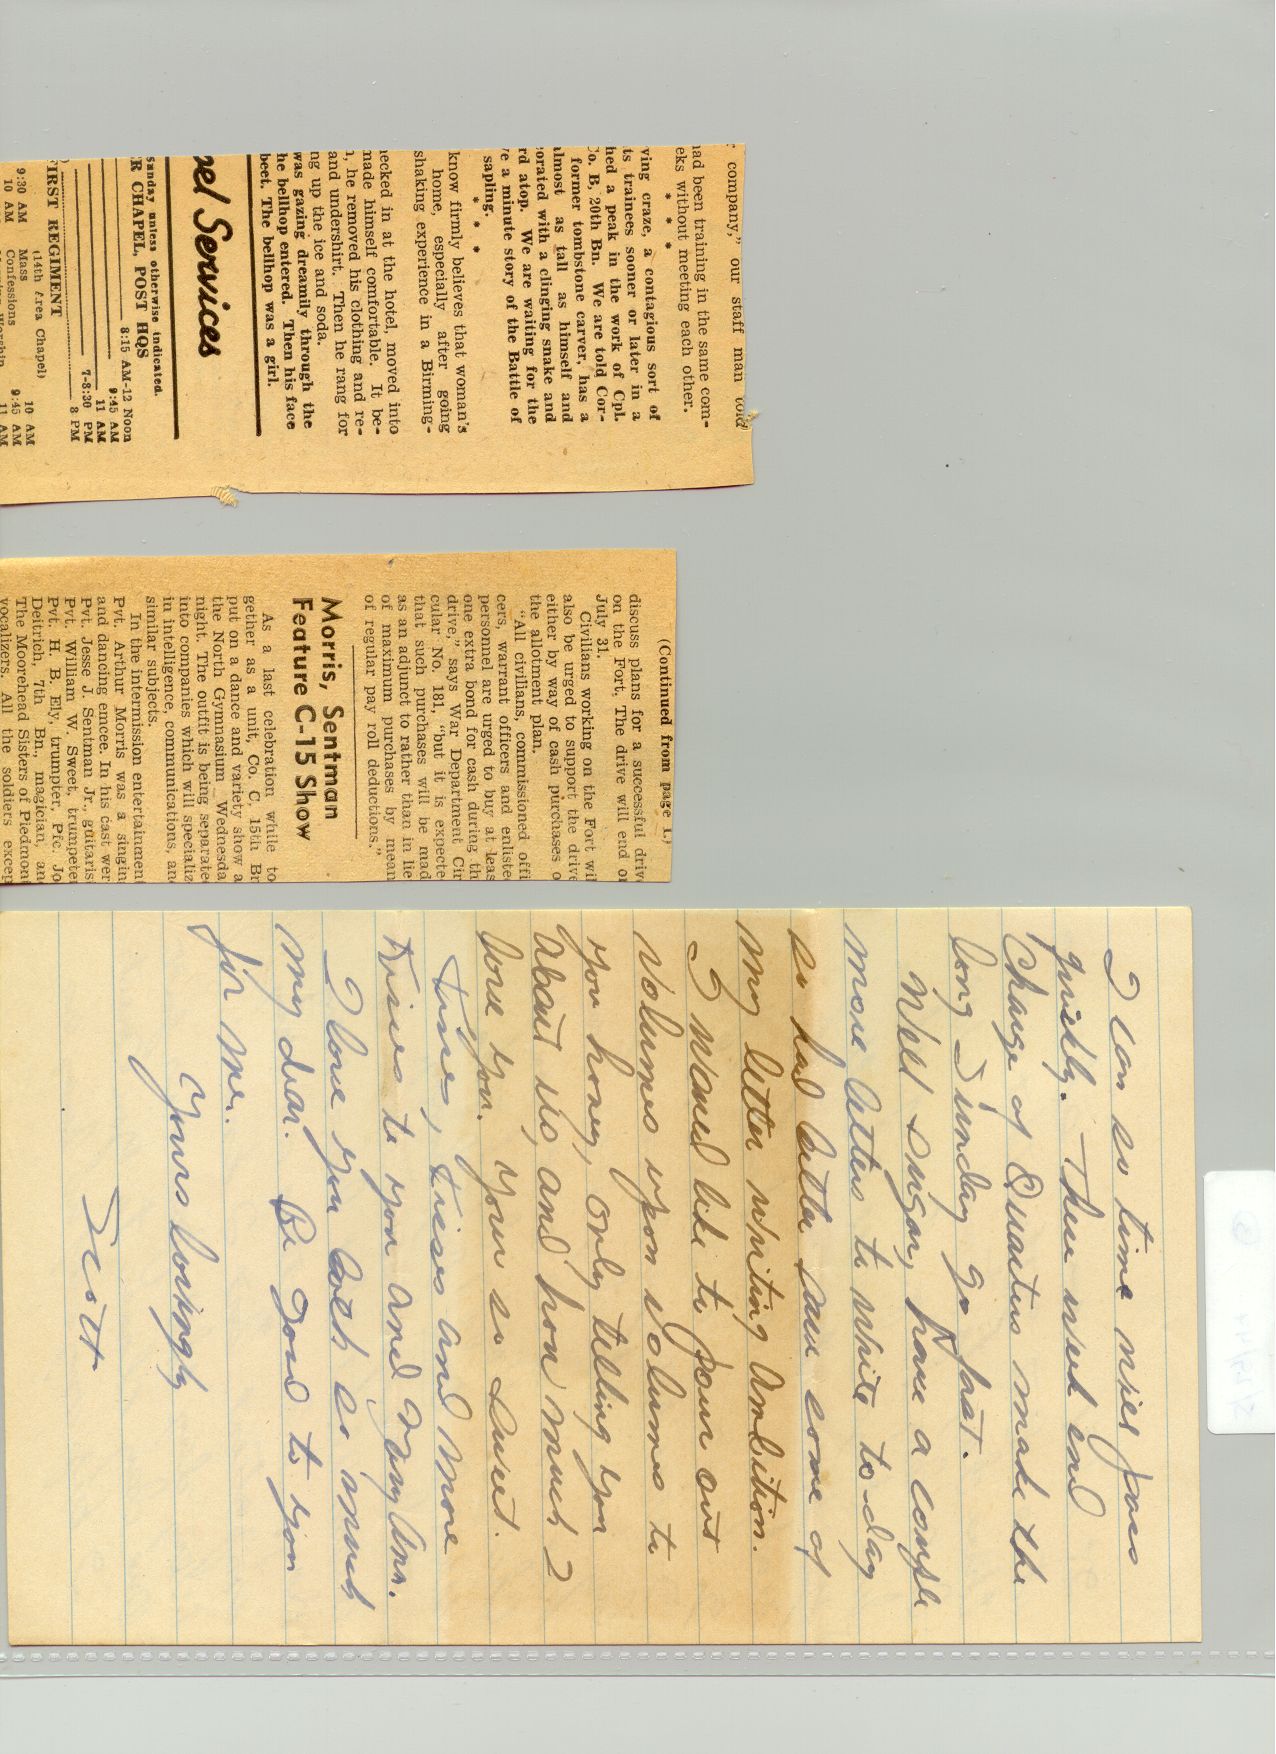 r company," our staff man told
had been training in the same com-
eks without meeting each other.
* * *
ving craze, a contagious sort of
ts trainees sooner or later in a
hed a peak in the work of Cpl.
Co. B, 20th Bn. We are told Cor-
former tombstone carver, has a
almost as tall as himself and
orated with a clinging snake and
rd atop. We are waiting for the
ve a minute story of the Battle of
sapling.
* * *
know firmly believes that woman's
home, especially after going
shaking experience in a Birming-
ecked in at the hotel, moved into
made himself comfortable. It be-
, he removed his clothing and re-
and undershirt. Then he rang for
ng up the ice and soda.
was gazing dreamily through the
he bellhop entered. Then his face
beet. The bellhop was a girl.
pel Services
Sunday unless otherwise indicated.
R CHAPEL, POST HQS
8:15 AM-12 Noon
9:45 AM
11 AM
7-8:30 PM
8 PM
FIRST REGIMENT
(14th Area Chapel)
9:30 AM Mass 10 AM
10 AM Confessions 9:45 AM
11 AM
(Continued from page 1.)
discuss plans for a successful driv
on the Fort. The drive will end o
July 31.
Civilians working on the Fort wil
also be urged to support the drive
either by way of cash purchases o
the allotment plan.
"All civilians, commissioned offi
cers, warrant officers and enliste
personnel are urged to buy at leas
one extra bond for cash during th
drive," says War Department Cir
cular No. 181, "but it is expecte
that such purchases will be mad
as an adjunct to rather than in lie
of maximum purchases by mean
of regular pay roll deductions."
Morris, Sentman
Feature C-15 Show
As a last celebration while to
gether as a unit, Co. C, 15th Bn
put on a dance and variety show a
the North Gymnasium Wednesda
night. The outfit is being separate
into companies which will specializ
in intelligence, communications, an
similar subjects.
In the intermission entertainmen
Pvt. Arthur Morris was a singin
and dancing emcee. In his cast wer
Pvt. Jesse J. Sentman Jr., guitaris
Pvt. William W. Sweet, trumpete
Pvt. H. B. Ely, trumpter, Pfc. Jo
Deitrich, 7th Bn., magician, an
The Moorehead Sisters of Piedmon
vocalizers. All the soldiers excep
I can so time will pass
quickly. Then week end
Charge of Quarters made the
long Sunday go fast.
Well sugar, have a couple
more letters to write to-day
so had better save some of
my letter writing ambition.
I would like to pour out
volumes upon volumes to
you honey, only telling you
about us, and how much I
love you. Your so sweet.
Kisses, kisses and more
Kisses to you and Mary Ann.
I love you both so much
my dear. Be good to you
for me.
Yours lovingly
Scott